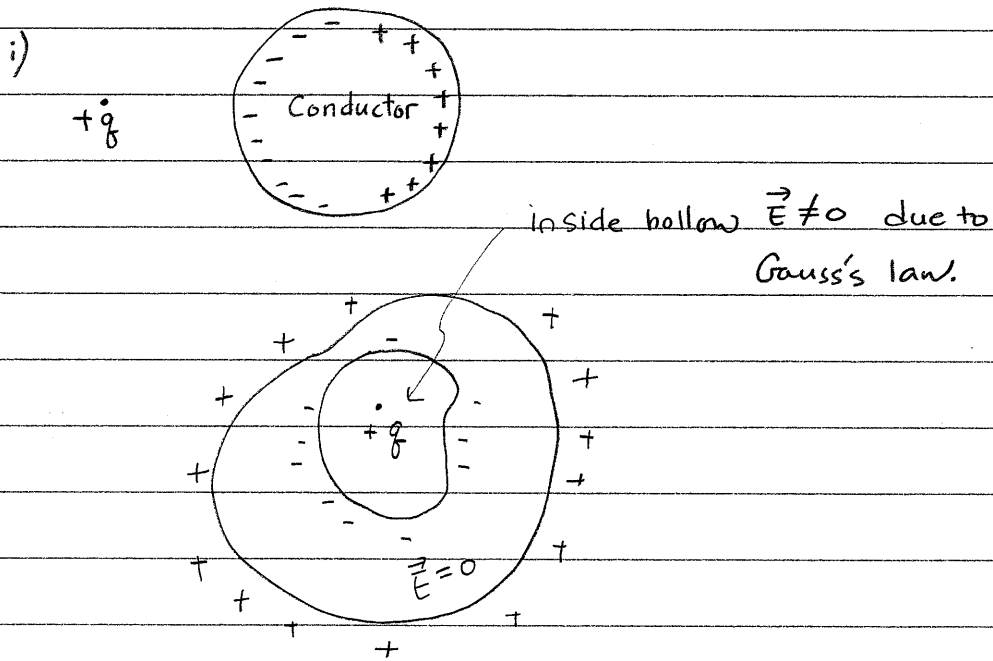 i)
Conductor
+q
inside hollow E⃗ ≠ 0 due to
Gauss's law.
+q
E⃗ = 0